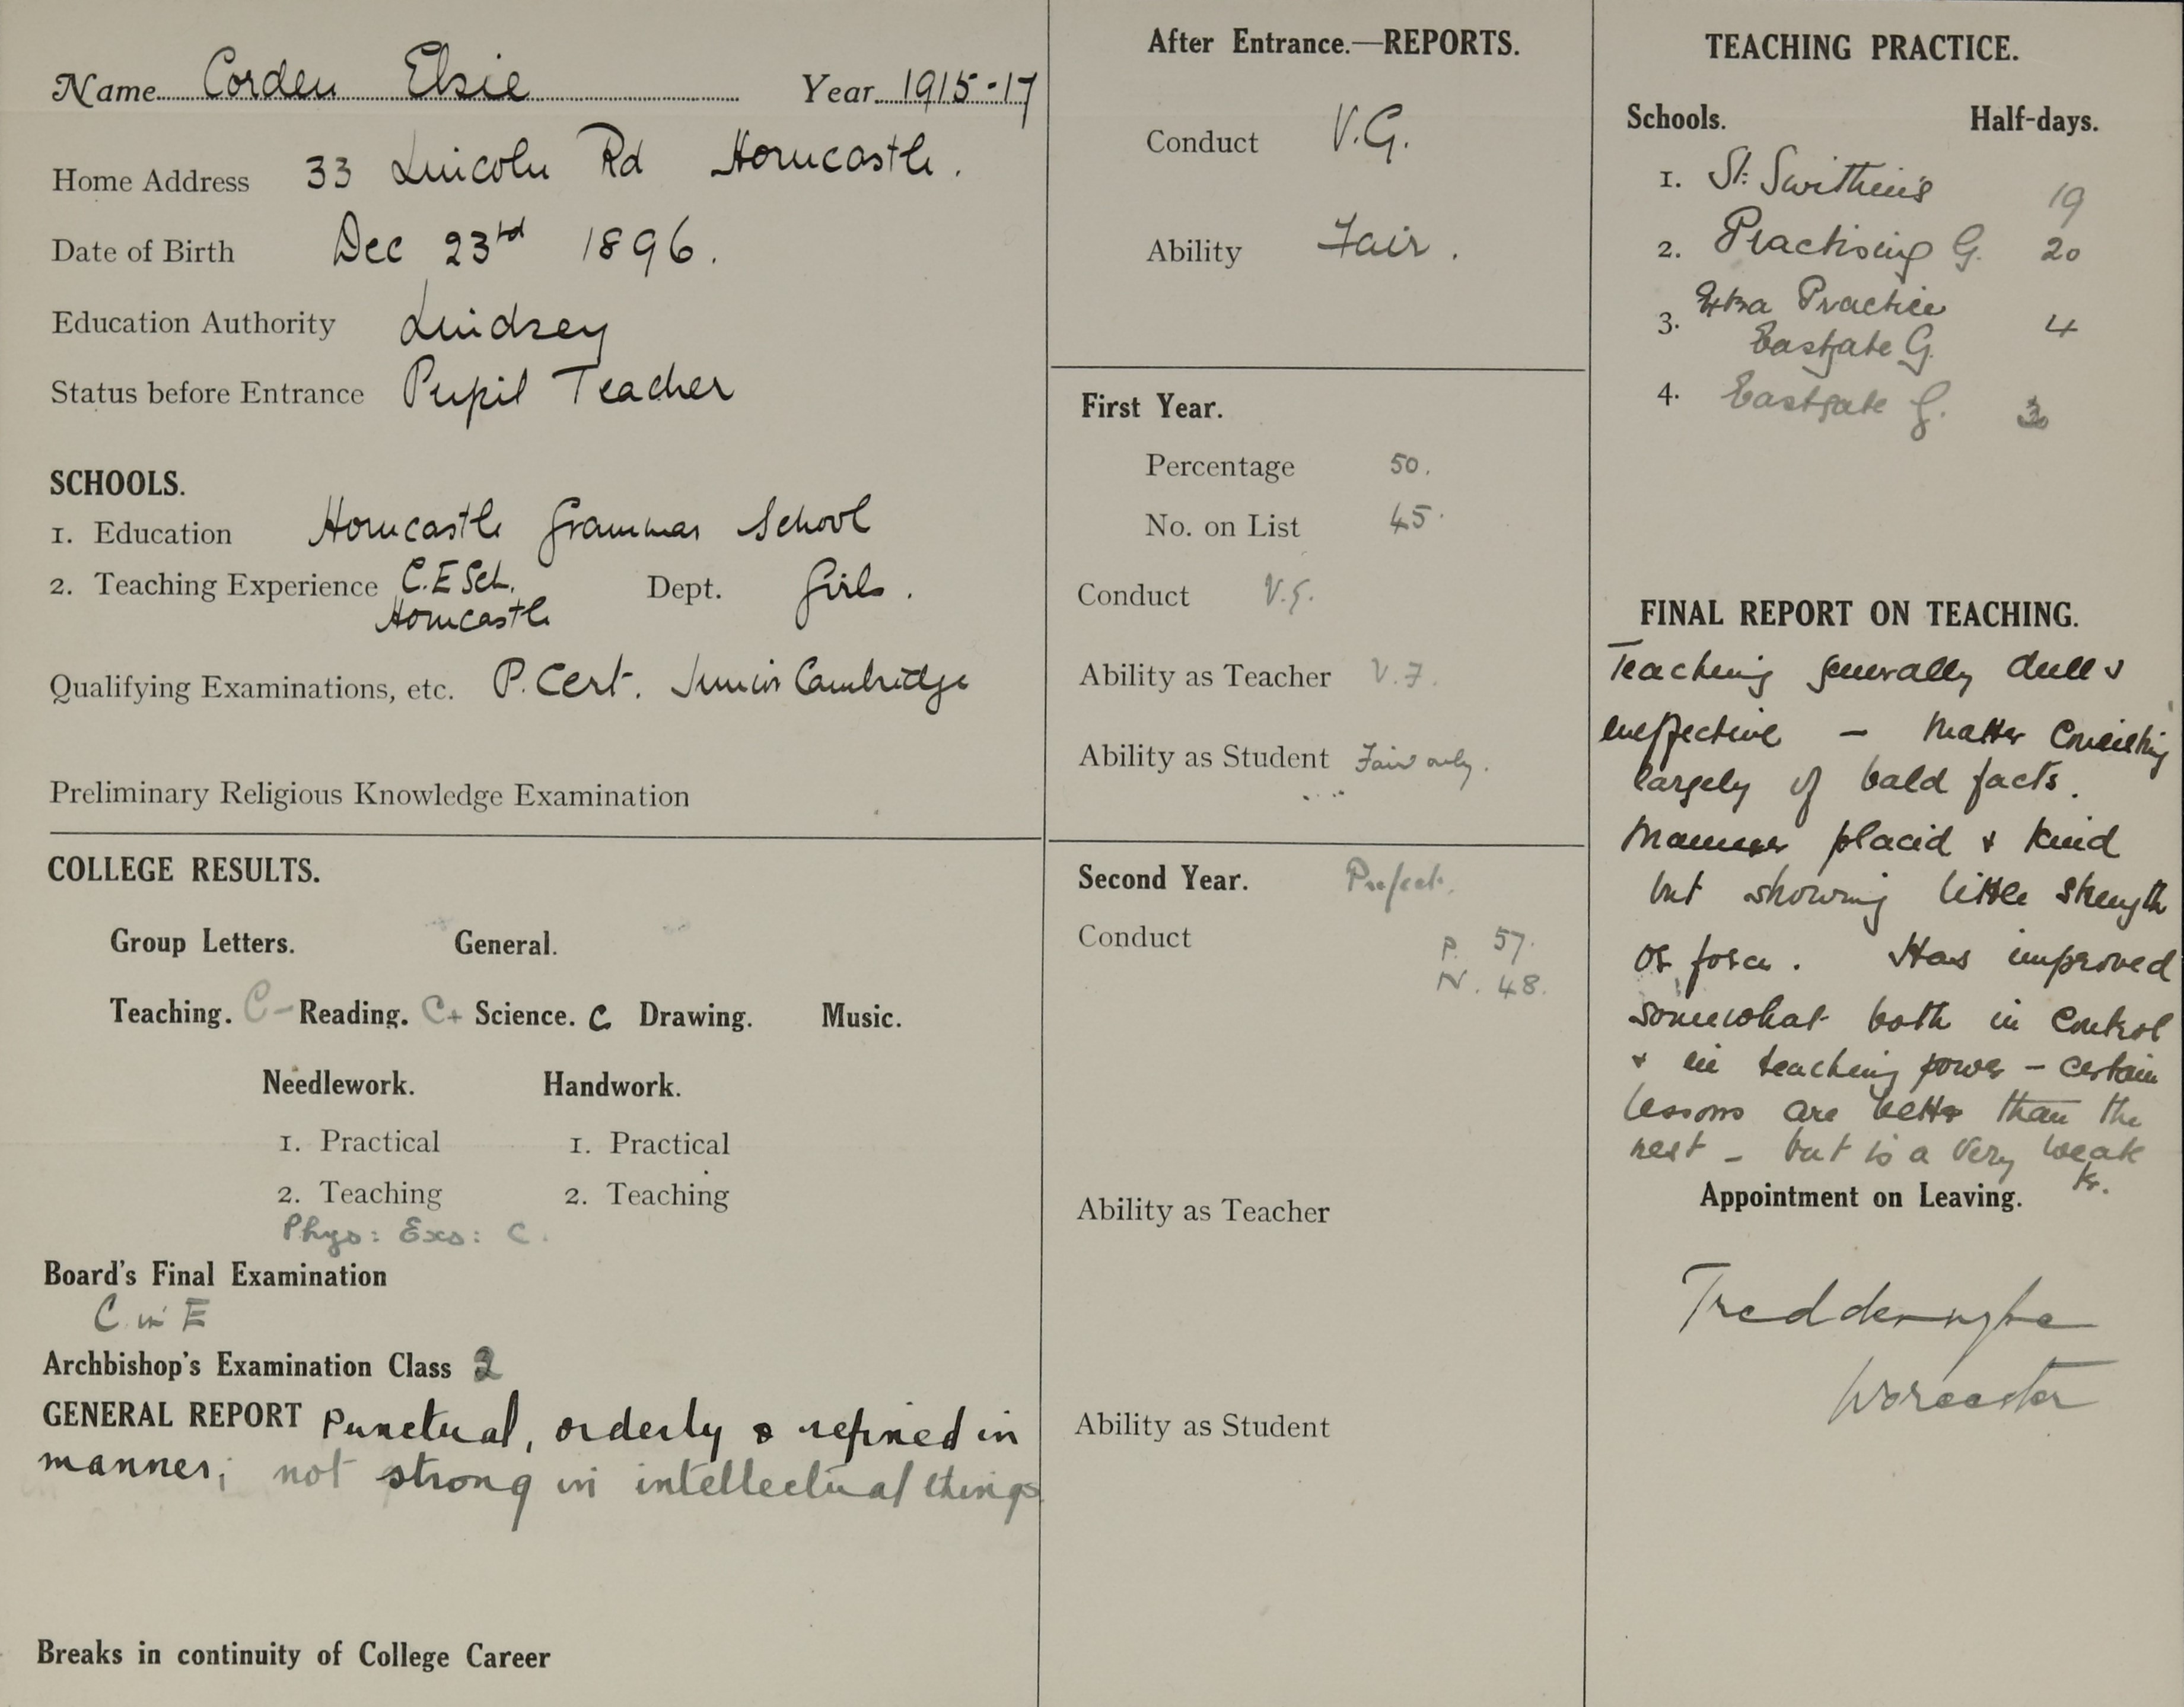 Name Corden Elsie Year 1915-17
Home Address 33 Lincoln Rd Horncastle.
Date of Birth Dec 23rd 1896.
Education Authority Lindsey
Status before Entrance Pupil Teacher
SCHOOLS.
1. Education Horncastle Grammar School
2. Teaching Experience C.E Sch. Dept. Girls.
Horncastle
Qualifying Examinations, etc. P. Cert. Junior Cambridge
Preliminary Religious Knowledge Examination
COLLEGE RESULTS.
Group Letters. General.
Teaching. C- Reading. C+ Science. C Drawing. Music.
Needlework. Handwork.
1. Practical 1. Practical
2. Teaching 2. Teaching
Phys: Exs: C.
Board's Final Examination
C in E
Archbishop's Examination Class 2
GENERAL REPORT Punctual, orderly & refined in
manner; not strong in intellectual things
Breaks in continuity of College Career
After Entrance.—REPORTS.
Conduct V.G.
Ability Fair.
First Year.
Percentage 50.
No. on List 45.
Conduct V.G.
Ability as Teacher V.F.
Ability as Student Fair only.
Second Year. Prefect.
Conduct P. 57.
N. 48.
Ability as Teacher
Ability as Student
TEACHING PRACTICE.
Schools. Half-days.
1. St. Swithin's 19
2. Practising G. 20
3. Extra Practice 4
Eastgate G.
4. Eastgate G.
FINAL REPORT ON TEACHING.
Teaching generally dull &
ineffective — matter consisting
largely of bald facts.
Manner placid & kind
but showing little strength
or force. Has improved
somewhat both in control
& in teaching power — certain
lessons are better than the
rest — but is a very weak
Appointment on Leaving.
Worcester